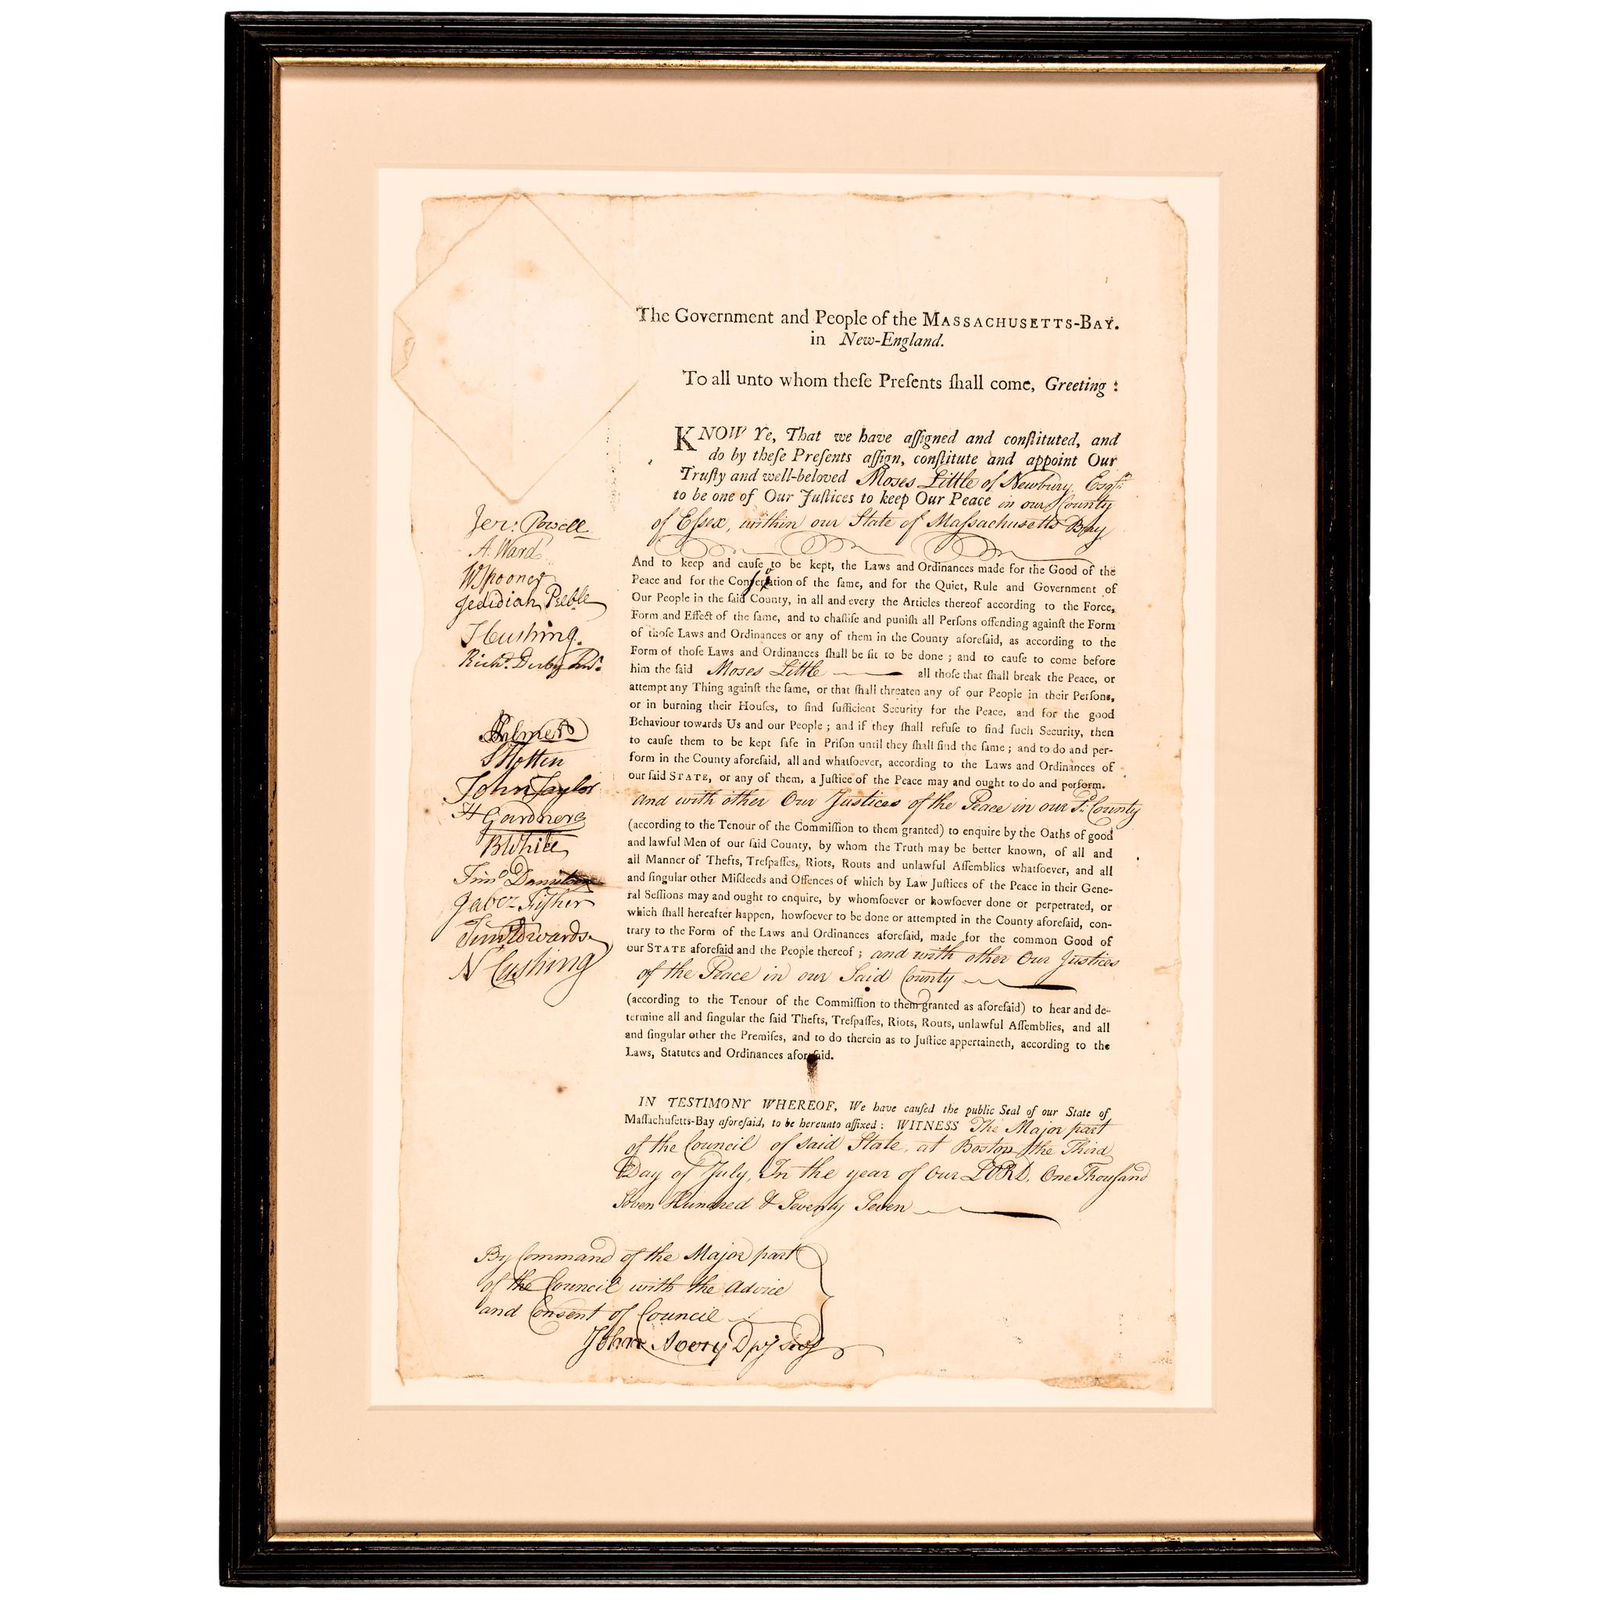 The Government and People of the MASSACHUSETTS-BAY.
in New-England.
To all unto whom theſe Preſents ſhall come, Greeting:
KNOW Ye, That we have aſſigned and conſtituted, and
do by theſe Preſents aſſign, conſtitute and appoint Our
Truſty and well-beloved Moses Little of Newbury, Esqr
to be one of Our Juſtices to keep Our Peace in our County
of Eſsex, within our State of Maſsachusetts Bay
And to keep and cauſe to be kept, the Laws and Ordinances made for the Good of the
Peace and for the of the ſame, and for the Quiet, Rule and Government of
Our People in the ſaid County, in all and every the Articles thereof according to the Force,
Form and Effect of the ſame, and to chaſtiſe and puniſh all Perſons offending againſt the Form
of thoſe Laws and Ordinances or any of them in the County aforeſaid, as according to the
Form of thoſe Laws and Ordinances ſhall be fit to be done; and to cauſe to come before
him the ſaid Moses Little all thoſe that ſhall break the Peace, or
attempt any Thing againſt the ſame, or that ſhall threaten any of our People in their Perſons,
or in burning their Houſes, to find ſufficient Security for the Peace, and for the good
Behaviour towards Us and our People; and if they ſhall refuſe to find ſuch Security, then
to cauſe them to be kept ſafe in Priſon until they ſhall find the ſame; and to do and per-
form in the County aforeſaid, all and whatſoever, according to the Laws and Ordinances of
our ſaid STATE, or any of them, a Juſtice of the Peace may and ought to do and perform.
and with other Our Justices of the Peace in our sd. County
(according to the Tenour of the Commiſſion to them granted) to enquire by the Oaths of good
and lawful Men of our ſaid County, by whom the Truth may be better known, of all and
all Manner of Thefts, Treſpaſſes, Riots, Routs and unlawful Aſſemblies whatſoever, and all
and ſingular other Miſdeeds and Offences of which by Law Juſtices of the Peace in their Gene-
ral Seſſions may and ought to enquire, by whomſoever or howſoever done or perpetrated, or
which ſhall hereafter happen, howſoever to be done or attempted in the County aforeſaid, con-
trary to the Form of the Laws and Ordinances aforeſaid, made for the common Good of
our STATE aforeſaid and the People thereof; and with other Our Justices
of the Peace in our Said County
(according to the Tenour of the Commiſſion to them granted as aforeſaid) to hear and de-
termine all and ſingular the ſaid Thefts, Treſpaſſes, Riots, Routs, unlawful Aſſemblies, and all
and ſingular other the Premiſes, and to do therein as to Juſtice appertaineth, according to the
Laws, Statutes and Ordinances aforeſaid.
IN TESTIMONY WHEREOF, We have cauſed the public Seal of our State of
Maſſachuſetts-Bay aforeſaid, to be hereunto affixed: WITNESS The Major part
of the Council of said State, at Boston the Third
Day of July, In the year of Our LORD, One Thouſand
Seven Hundred & Seventy Seven
Jer: Powell
A. Ward
W Spooner
Jedidiah Preble
T Cushing
Richd. Derby
S Holten
John Taylor
H Gardner
B White
Timo Danielson
Jabez Fisher
Tim Edwards
N Cushing
By Command of the Major part
of the Council with the Advice
and Consent of Council
John Avery Dpy Secy